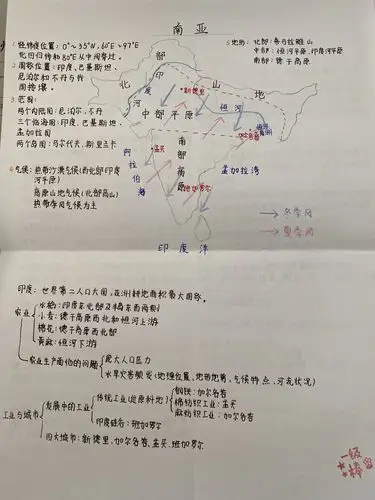 南 亚
1.经纬度位置：0°~35°N, 60°E~97°E
北回归线和80°E从中间穿过。
2.周边位置：印度、巴基斯坦、
尼泊尔和不丹与我
国接壤。
3.范围：
两个内陆国：尼泊尔、不丹
三个临海国：印度、巴基斯坦、
孟加拉国
两个岛国：马尔代夫、斯里兰卡
4.气候：热带沙漠气候（西北部印度
河平原）
高原山地气候（北部高山）
热带季风气候为主
5.地形：北部：喜马拉雅山
中部：恒河平原、印度河平原
南部：德干高原
北 部 山 地
印 度 河
新德里
恒 河
中 部 平 原
加尔各答
孟买
南 部 高 原
班加罗尔
阿 拉 伯 海
孟 加 拉 湾
印 度 洋
→ 冬季风
→ 夏季风
印度：世界第二人口大国，亚洲耕地面积最大国家。
农业
水稻：印度东北部及半岛东西两侧
小麦：德干高原西北和恒河上游
棉花：德干高原西北部
黄麻：恒河下游
农业生产面临的问题
庞大人口压力
水旱灾害频发（地理位置、地形地势、气候特点、河流状况）
工业与城市
发展中的工业
传统工业（近原料地）
钢铁：加尔各答
棉纺织工业：孟买
麻纺织工业：加尔各答
印度硅谷：班加罗尔
四大城市：新德里、加尔各答、孟买、班加罗尔
一级
棒